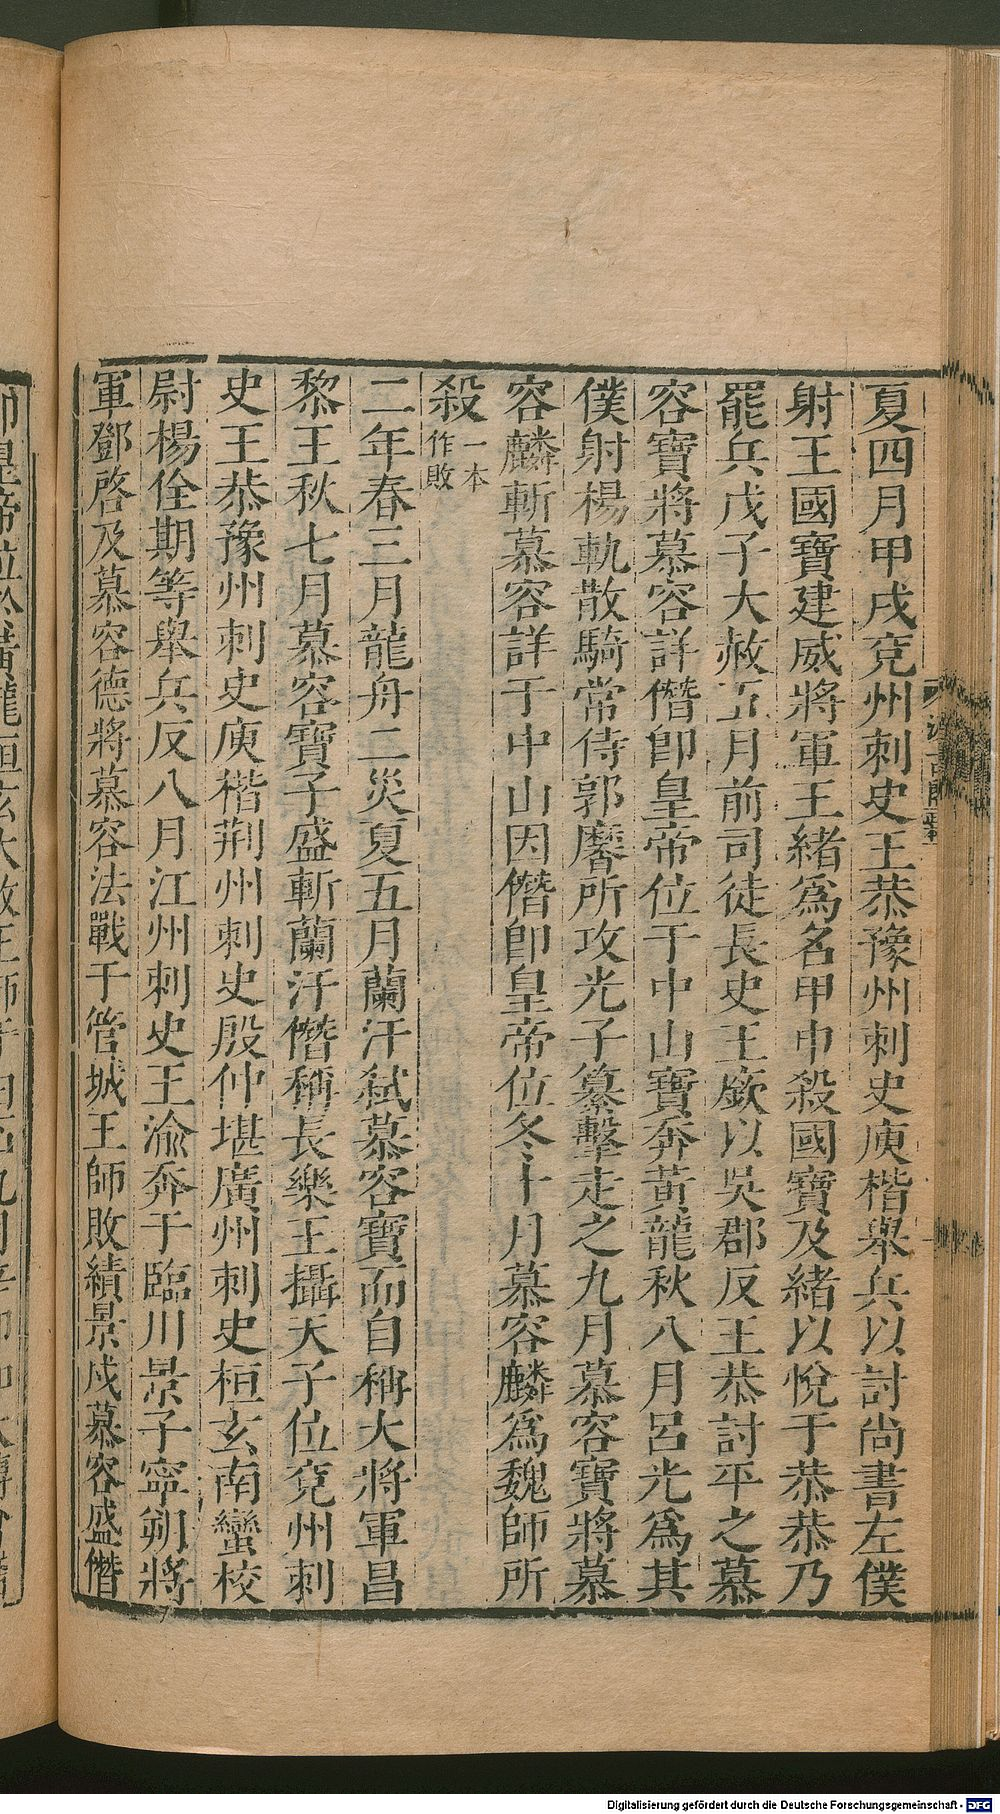 夏四月甲戌兗州刺史王恭豫州刺史庾楷舉兵以討尚書左僕
射王國寶建威將軍王緒爲名甲申殺國寶及緒以悅于恭恭乃
罷兵戊子大赦五月前司徒長史王廞以吳郡反王恭討平之慕
容寶將慕容詳僭卽皇帝位于中山寶奔黃龍秋八月呂光爲其
僕射楊軌散騎常侍郭黁所攻光子纂擊走之九月慕容寶將慕
容麟斬慕容詳于中山因僭卽皇帝位冬十月慕容麟爲魏師所
殺一本作敗
二年春三月龍舟二災夏五月蘭汗弒慕容寶而自稱大將軍昌
黎王秋七月慕容寶子盛斬蘭汗僭稱長樂王攝天子位兗州刺
史王恭豫州刺史庾楷荆州刺史殷仲堪廣州刺史桓玄南蠻校
尉楊佺期等舉兵反八月江州刺史王渝奔于臨川景子寧朔將
軍鄧啓及慕容德將慕容法戰于管城王師敗績景戌慕容盛僭
Digitalisierung gefördert durch die Deutsche Forschungsgemeinschaft - DFG